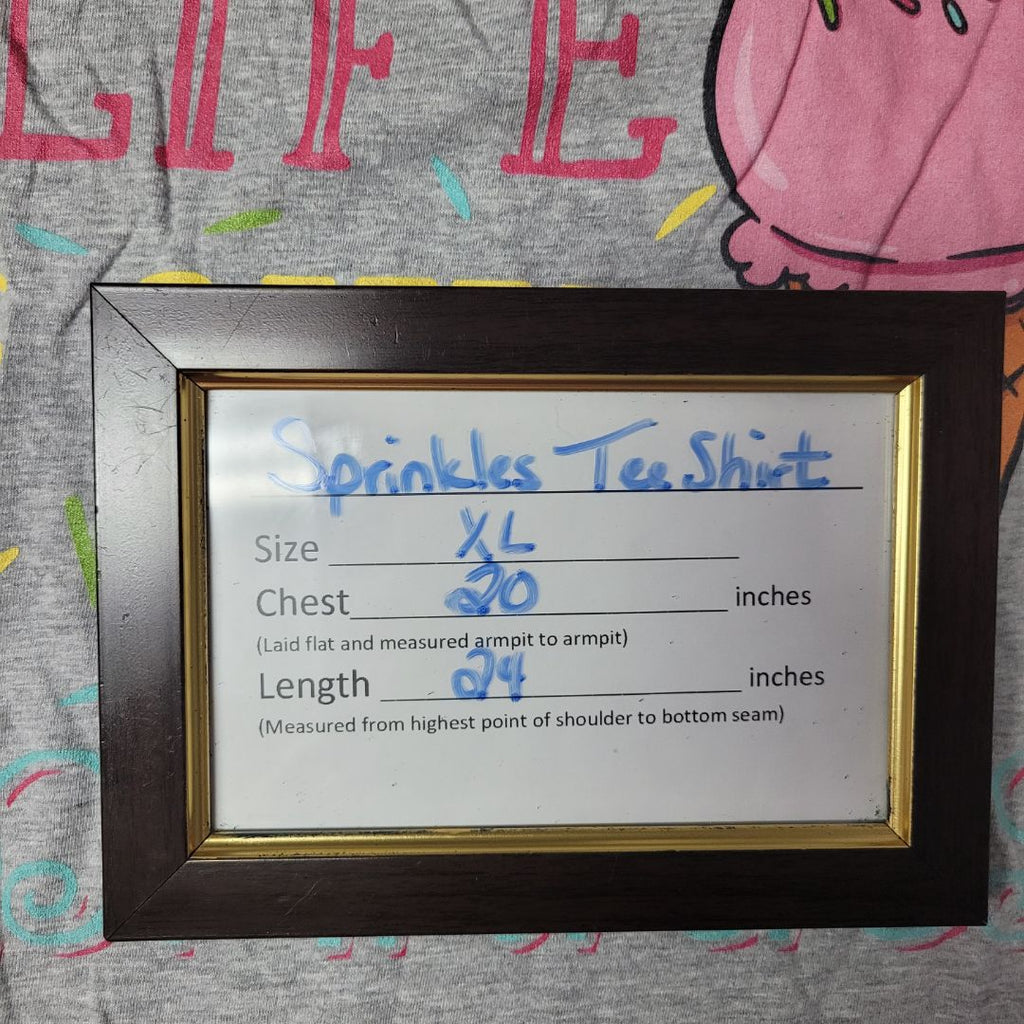 LIFE
Sprinkles Tee Shirt
Size XL
Chest 20 inches
(Laid flat and measured armpit to armpit)
Length 24 inches
(Measured from highest point of shoulder to bottom seam)